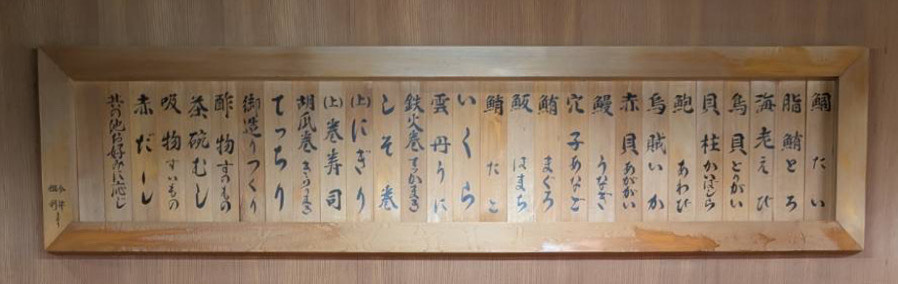 鯛 たい
脂鮪 とろ
海老 えび
鳥貝 とりがい
貝柱 かいばしら
鮑 あわび
烏賊 いか
赤貝 あかがい
鰻 うなぎ
穴子 あなご
鮪 まぐろ
鰤 はまち
鮹 たこ
いくら
雲丹 うに
鉄火巻 てっかまき
しそ巻
(上)にぎり
(上)巻寿司
胡瓜巻 きうりまき
てっちり
御造り つくり
酢物 すのもの
茶碗むし
吸物 すいもの
赤だし
其の他お好みに応じ